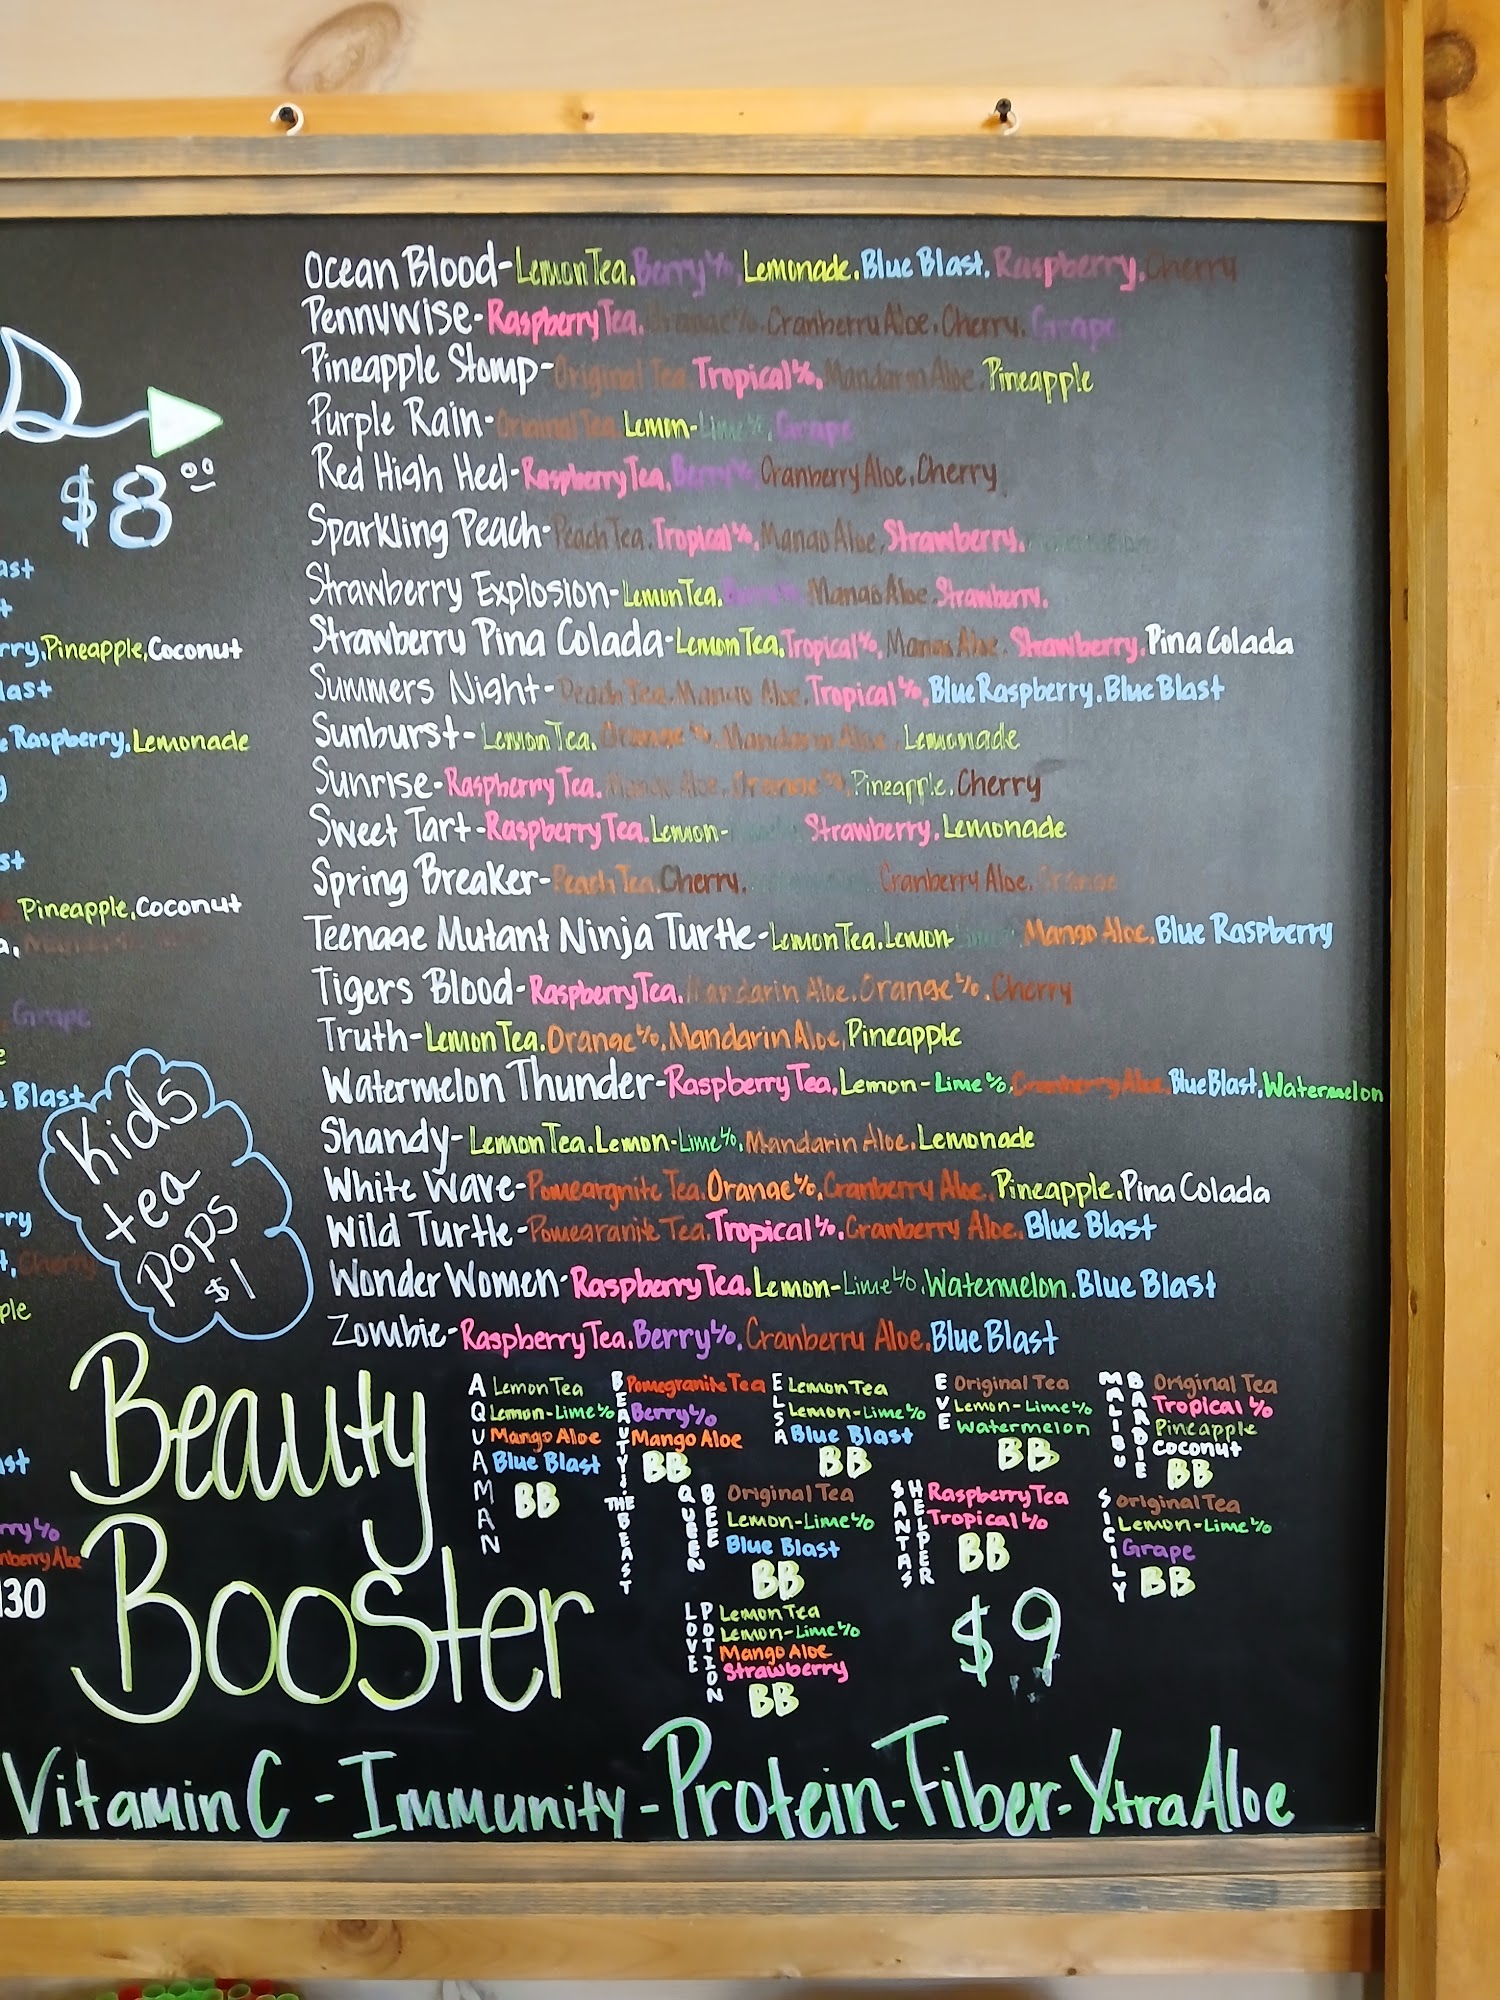 Ocean Blood-Lemon Tea.Berry L/O,Lemonade.Blue Blast.Raspberry.Cherry
Pennywise-Raspberry Tea.Orange L/O.Cranberry Aloe.Cherry.Grape
Pineapple Stomp-Original Tea.Tropical L/O.Mandarin Aloe.Pineapple
Purple Rain-Original Tea.Lemon-Lime L/O.Grape
Red High Heel-Raspberry Tea.Berry L/O.Cranberry Aloe.Cherry
Sparkling Peach-Peach Tea.Tropical L/O.Mango Aloe.Strawberry.Watermelon
Strawberry Explosion-Lemon Tea.Berry L/O.Mango Aloe.Strawberry.
Strawberry Pina Colada-Lemon Tea.Tropical L/O.Mango Aloe.Strawberry.Pina Colada
Summers Night-Peach Tea.Mango Aloe.Tropical L/O.Blue Raspberry.Blue Blast
Sunburst-Lemon Tea.Orange L/O.Mandarin Aloe.Lemonade
Sunrise-Raspberry Tea.Mango Aloe.Orange L/O.Pineapple.Cherry
Sweet Tart-Raspberry Tea.Lemon- Strawberry.Lemonade
Spring Breaker-Peach Tea.Cherry. Cranberry Aloe.Orange
Teenage Mutant Ninja Turtle-Lemon Tea.Lemon-Lime Mango Aloe.Blue Raspberry
Tigers Blood-Raspberry Tea.Mandarin Aloe.Orange L/O.Cherry
Truth-Lemon Tea.Orange L/O.Mandarin Aloe,Pineapple
Watermelon Thunder-Raspberry Tea.Lemon-Lime L/O.Cranberry Aloe.Blue Blast.Watermelon
Shandy-Lemon Tea.Lemon-Lime L/O.Mandarin Aloe.Lemonade
White Wave-Pomeargnite Tea.Orange L/O.Cranberry Aloe.Pineapple.Pina Colada
Wild Turtle-Pomegranite Tea.Tropical L/O.Cranberry Aloe.Blue Blast
Wonder Women-Raspberry Tea.Lemon-Lime L/O.Watermelon.Blue Blast
Zombie-Raspberry Tea.Berry L/O.Cranberry Aloe.Blue Blast
$8.00
ast
rry.Pineapple,Coconut
last
e Raspberry.Lemonade
y
st
Pineapple,Coconut
a.
Grape
e
e Blast
rry
t,Cherry
ple
ast
rry L/O
nberry Aloe
130
Kids
tea
pops
$1
Beauty
Booster
AQUAMAN
Lemon Tea
Lemon-Lime L/O
Mango Aloe
Blue Blast
BB
BEAUTY & THE BEAST
Pomegranite Tea
Berry L/O
Mango Aloe
BB
ELSA
Lemon Tea
Lemon-Lime L/O
Blue Blast
BB
EVE
Original Tea
Lemon-Lime L/O
Watermelon
BB
MALIBU BARBIE
Original Tea
Tropical L/O
Pineapple
Coconut
BB
QUEEN BEE
Original Tea
Lemon-Lime L/O
Blue Blast
BB
SANTAS HELPER
Raspberry Tea
Tropical L/O
BB
SICILY
Original Tea
Lemon-Lime L/O
Grape
BB
LOVE POTION
Lemon Tea
Lemon-Lime L/O
Mango Aloe
Strawberry
BB
$9
Vitamin C - Immunity - Protein - Fiber - Xtra Aloe